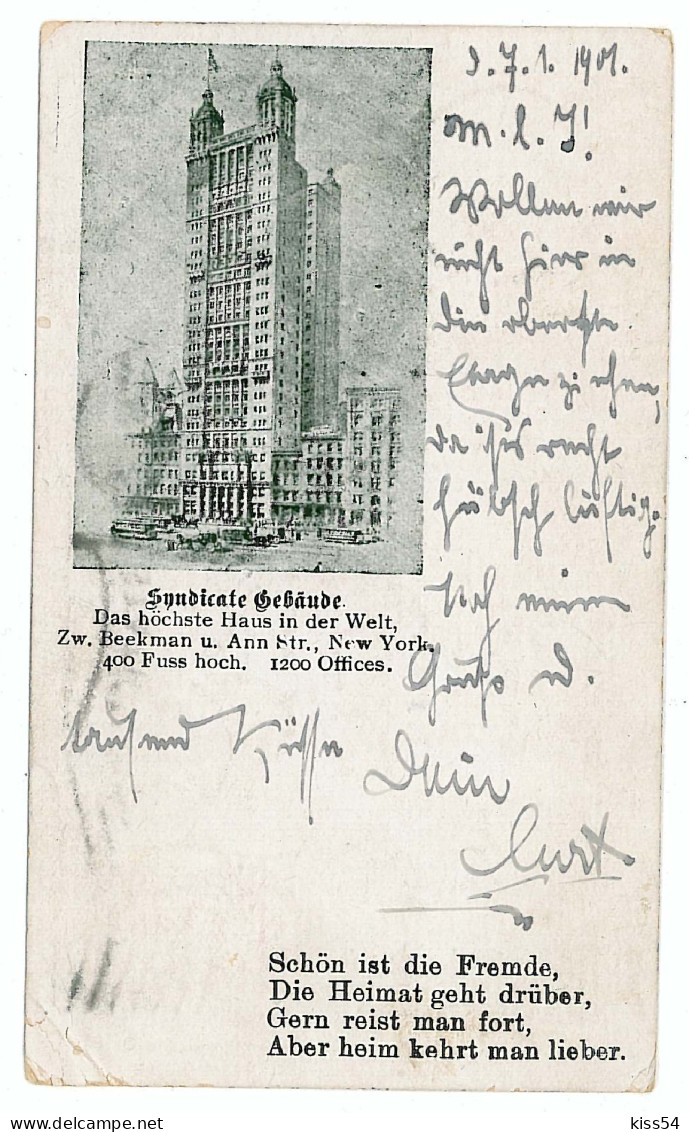 d. 7. 1. 1901.
M. l. J!
Wollen wir
nicht hier in
die oberste
Etage ziehen,
da ist es recht
hübsch luftig.
Gruß u.
tausend Küsse Dein
Curt
Syndicate Gebäude.
Das höchste Haus in der Welt,
Zw. Beekman u. Ann Str., New York.
400 Fuss hoch. 1200 Offices.
Schön ist die Fremde,
Die Heimat geht drüber,
Gern reist man fort,
Aber heim kehrt man lieber.
kiss54